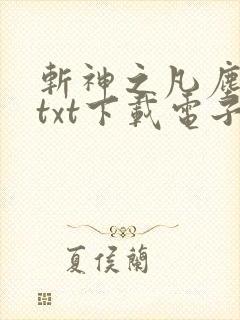 斬神之凡塵
txt下載電子
夏侯蘭